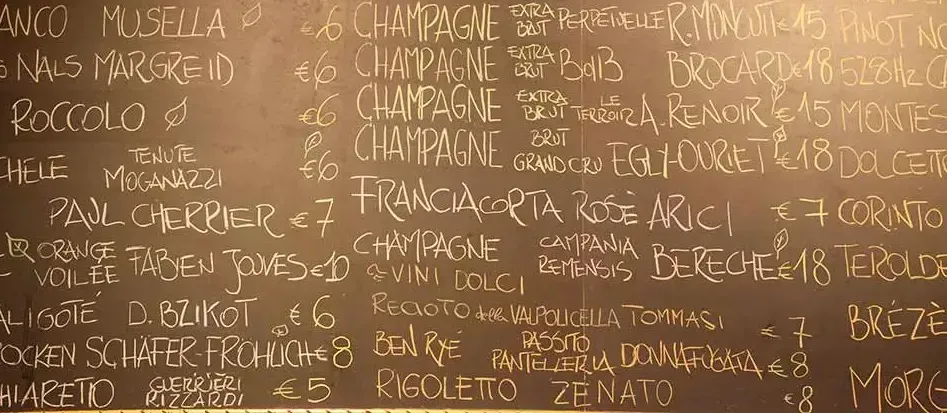 ANCO MUSELLA €6
NALS MARGREID €6
ROCCOLO €6
CHELE TENUTE MOGANAZZI €6
PAUL CHERRIER €7
ORANGE VOILÉE FABIEN JOUVES €10
ALIGOTÉ D. BZIKOT €6
OCKEN SCHÄFER-FROHLICH €8
HIARETTO GUERRIERI RIZZARDI €5
CHAMPAGNE EXTRA BRUT PERPÉTUELLE R. MONCUIT €15
CHAMPAGNE EXTRA BRUT BOIIB BROCARD €18
CHAMPAGNE EXTRA BRUT LE TERROIR A. RENOIR €15
CHAMPAGNE BRUT GRAND CRU EGLY-OURIET €18
FRANCIACORTA ROSÈ ARICI €7
CHAMPAGNE CAMPANIA REMENSIS BERECHE €18
VINI DOLCI
RECIOTO della VALPOLICELLA TOMMASI €7
BEN RYÉ PASSITO PANTELLERIA DONNAFUGATA €8
RIGOLETTO ZENATO €8
PINOT NO
528Hz C
MONTES
DOLCETT
CORINTO
TEROLDE
BRÉZÈ
MORG